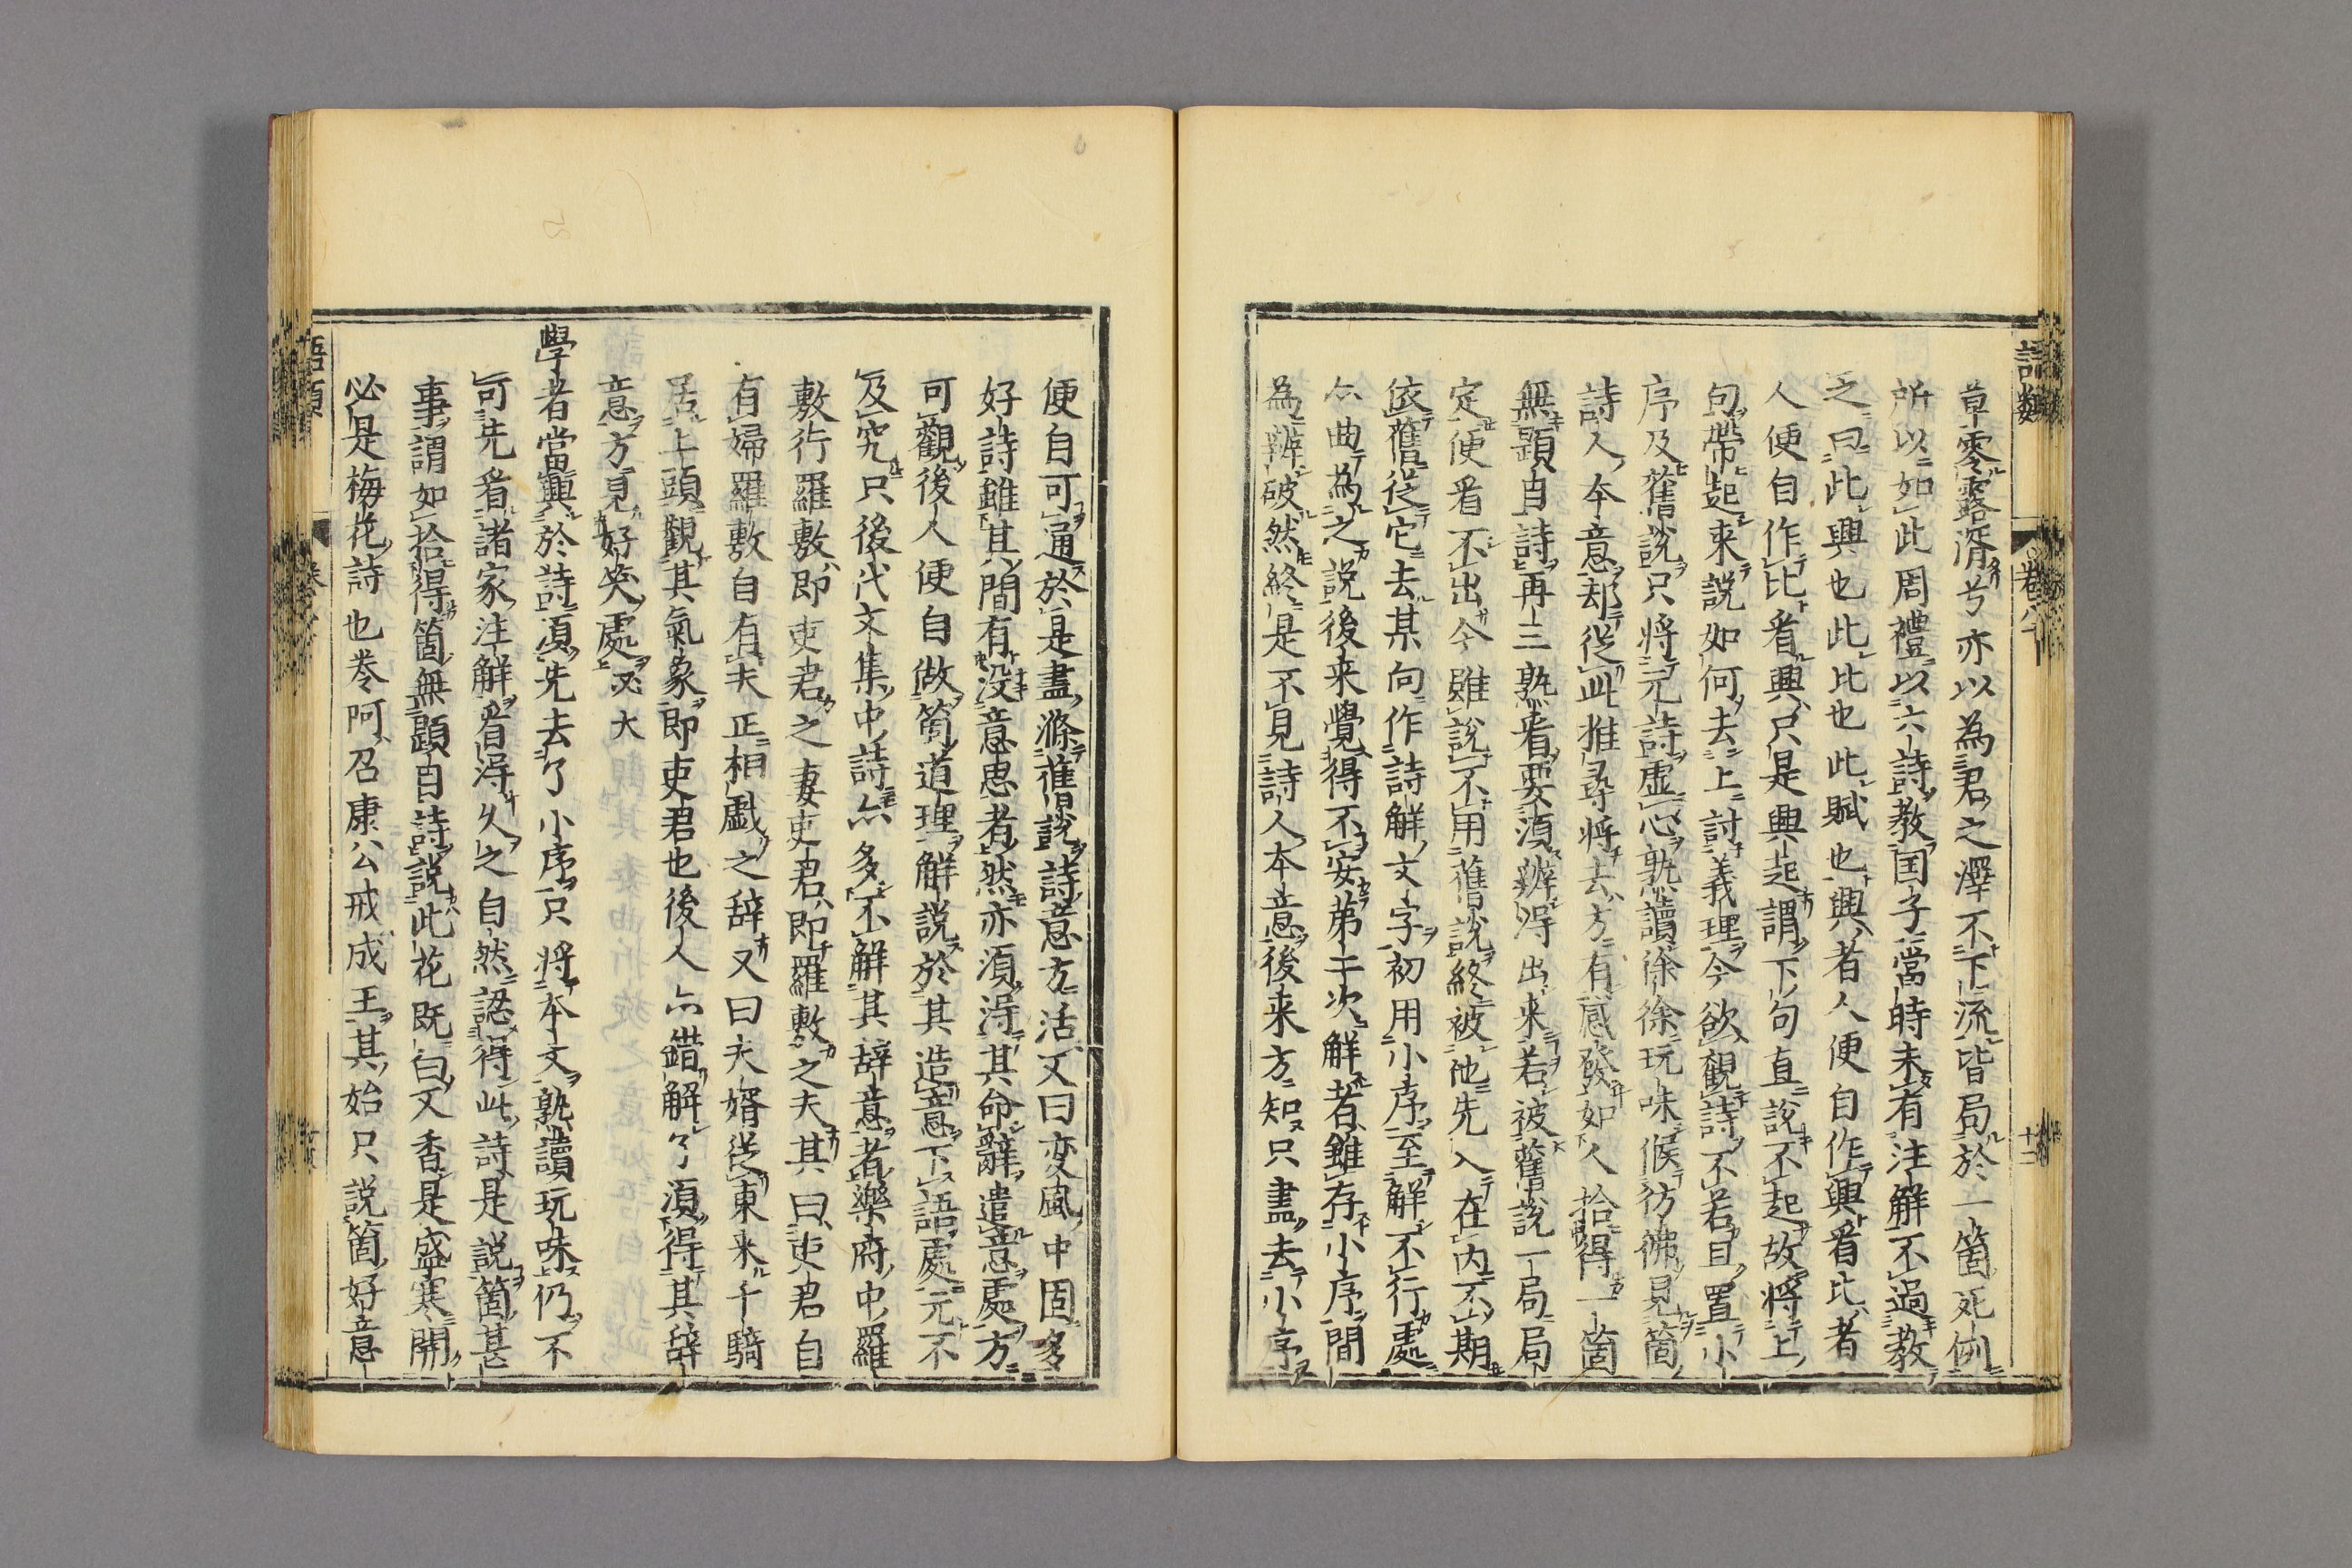 語類
卷八
十二
草零露湑兮亦以為君之澤不下流皆局於一箇死例
所以如此周禮以六詩教国子當時未有注解不過教
之曰此興也此比也此賦也興者人便自作興看比者
人便自作比看興只是興起謂下句直說不起故將上
句帶起来說如何去上討義理今欲觀詩不若且置小
序及舊說只将元詩虚心熟讀徐徐玩味候彷彿見箇
詩人本意却従此推尋将去方有感發如人拾得一箇
無題目詩再三熟看要湏辨得出来若被舊說一局局
定便看不出今雖說不用舊說終被他先入在内不期
依舊従它去某向作詩解文字初用小序至解不行處
亦曲為之說後来覺得不安第二次解者雖存小序間
為辨破然終是不見詩人本意後来方知只盡去小序
便自可通於是盡滌舊說詩意方活又曰変風中固多
好詩雖其間有没意思者然亦湏得其命辭遣意處方
可觀後人便自做箇道理解說於其造意下語處元不
及究只後代文集中詩亦多不解其辞意者樂府中羅
敷行羅敷即吏君之妻吏君即羅敷之夫其曰吏君自
有婦羅敷自有夫正相戯之辞又曰夫婿従東来千騎
居上頭觀其氣象即吏君也後人亦錯解了湏得其辞
意方見好笑處 大
學者當興於詩湏先去了小序只将本文熟讀玩味仍不
可先看諸家注解看得久之自然認得此詩是説箇甚
事謂如拾得箇無題目詩説此花既白又香是盛寒開
必是梅花詩也卷阿召康公戒成王其始只説箇好意
語類